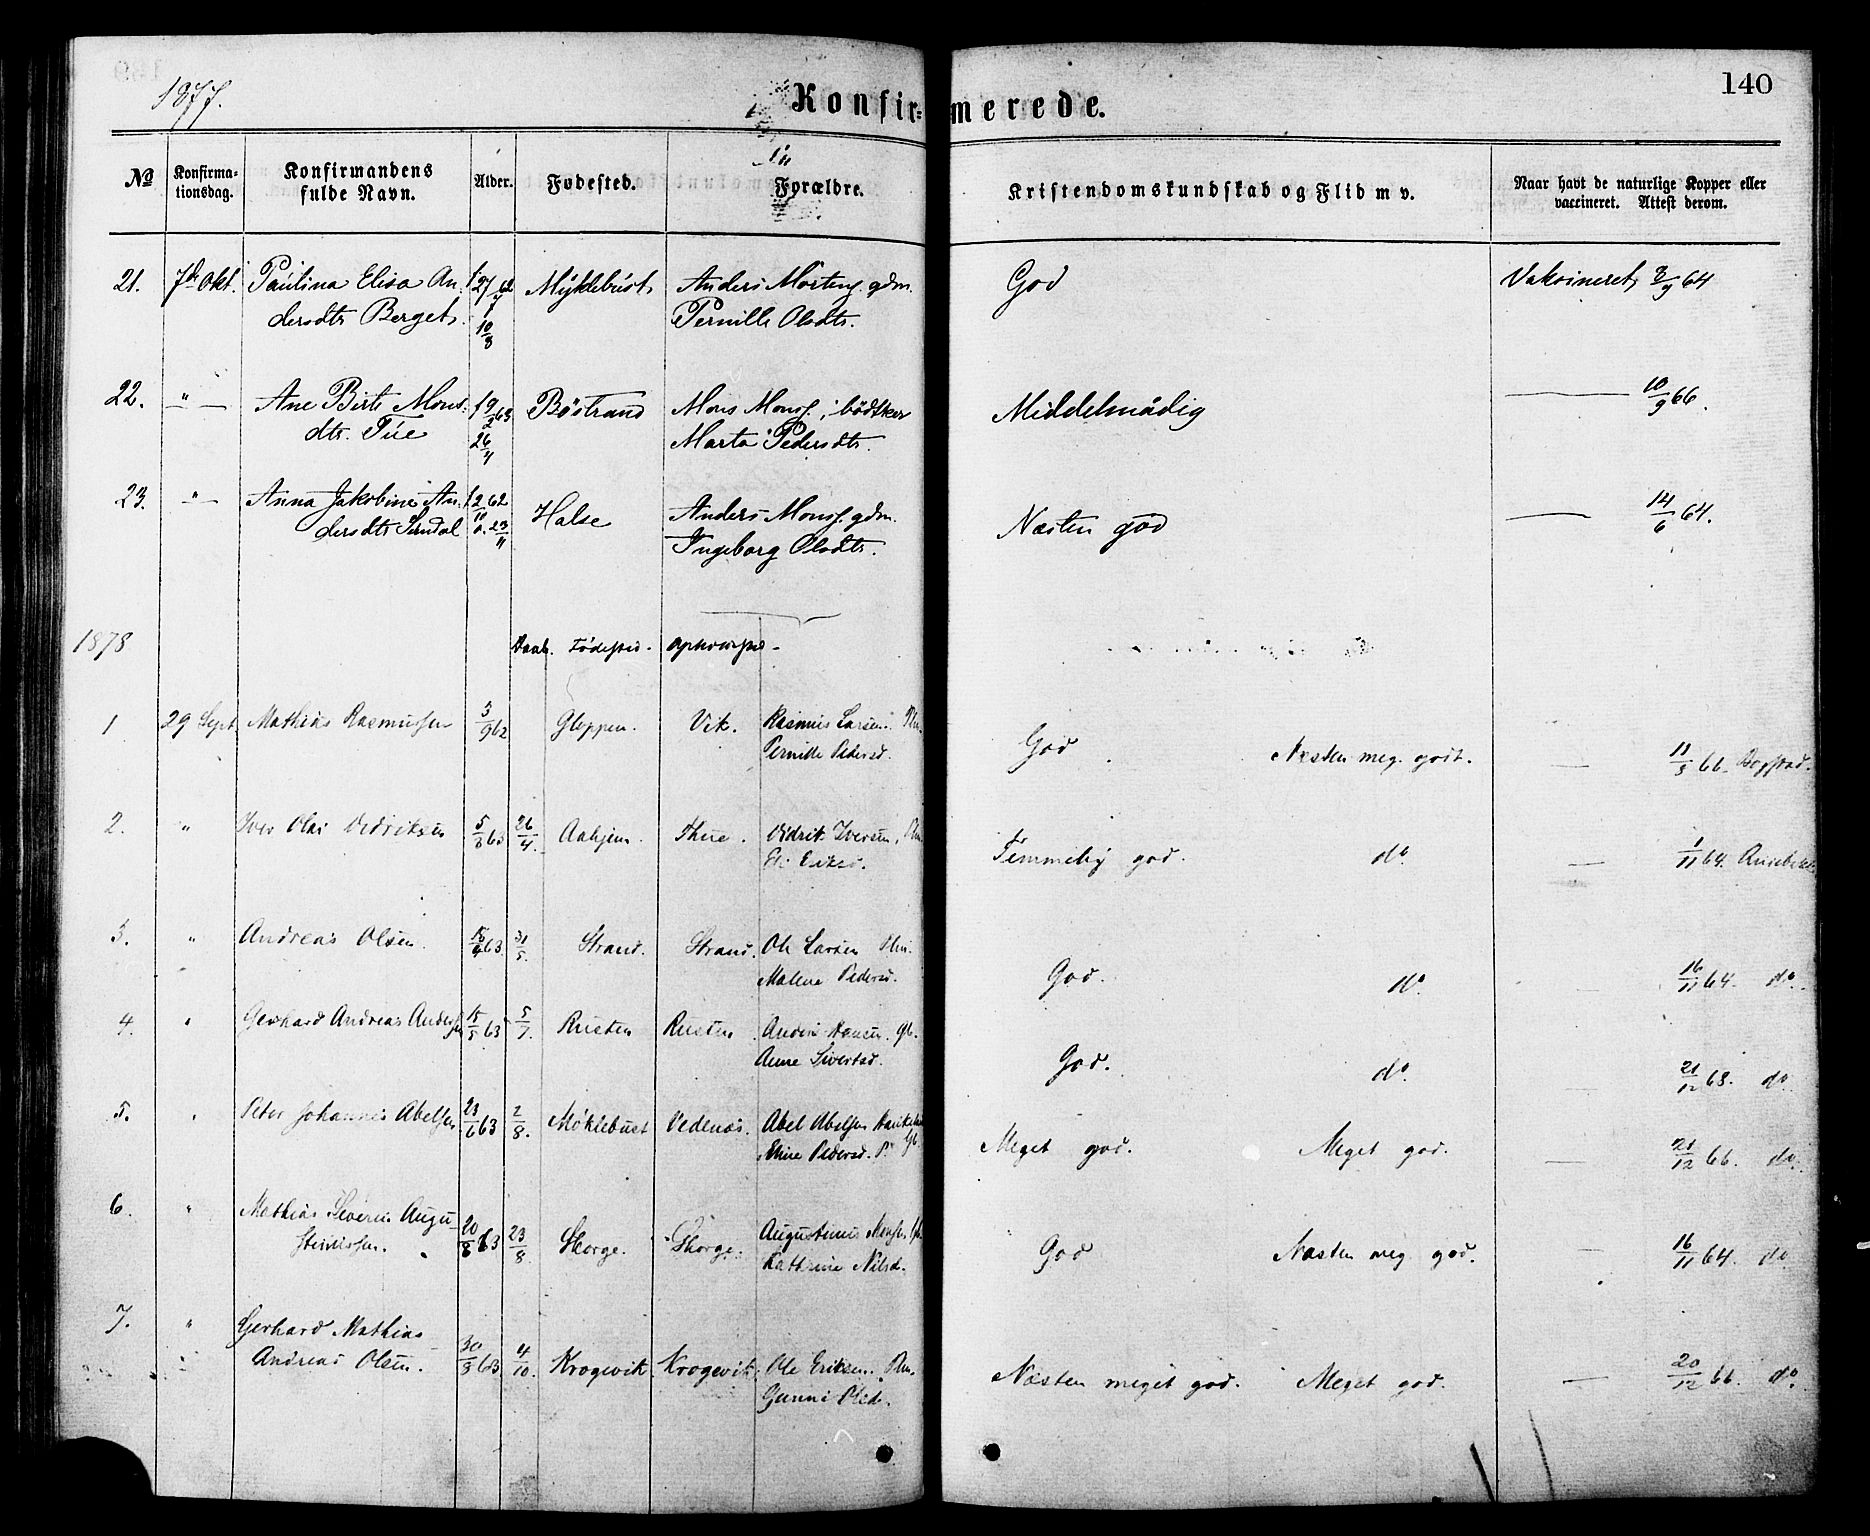 1877.
Konfir= merede.
140
No Konfirma-tionsdag. Konfirmandens fulde Navn. Alder. Fødested. Forældre. Kristendomskundskab og Flid m v. Naar havt de naturlige Kopper eller vaccineret. Attest derom.
21. 7de Okt. Paulina Elisa An- f 27/7 62 Myklebust, Anders Mortens. gdm. God Vaksineret, 8/9 64
dersdtr Berget. 10/8 Pernille Olsdtr.
22. " Ane Birte Mons- f 9/2 63 Böstrand Mons Mons., bödtker Middelmådig — 10/9 66.
dtr. Tue 26/4 Marta Pedersdtr.
23. " Anna Jakobine An- f 2/10 62 Halse Anders Mons. gdm. Næsten god — 14/6 64.
dersdtr Sindal 23/11 Ingeborg Olsdtr.
1878
Daab. Fødested.
1 29 Sept Mathias Rasmussen 3/9 62 Gloppen. Vik. Rasmus Larsen. Plm. God Næsten meg. godt. — 11/5 66
Pernille Pedersd.
2. " Iver Olai Vedriksen 5/3 63 26/4 Aahjem. Thue. Vidrik Iversen, Plm Temmelig god. do — 1/11 64.
Eli Eriksd.
3. " Andreas Olsen. 15/4 63 31/5. Strand. Strand. Ole Larsen Plm. God. do. 16/11 64. do.
Malene Pedersd.
4. " Gerhard Andreas Andersen 15/5 63 5/7. Rusten Rusten Hansen. Gb. God. do. 21/12 68. do.
Anne Sivertsd.
5. " Peter Johannes Abelsen 23/6 63 2/8. Møklebust Vedenæs. Abel Abelsen Meget god. Meget god. — 21/12 66. do.
Eline Pedersd.
6. " Mathias Severin Augu- 20/8 63 23/8 Skorge. Skorge. Augustinus Monsen God Næsten meg. god. 16/11 64. do.
stinussen. Kathrine Nilsd.
7. " Gerhard Mathias
Andreas Olsen. 30/8 63 4/10. Krogevik. Krogevik. Ole Eriksen. Plm. Næsten meget god. Meget god. — 20/12 66. do.
Gunni Olsd.